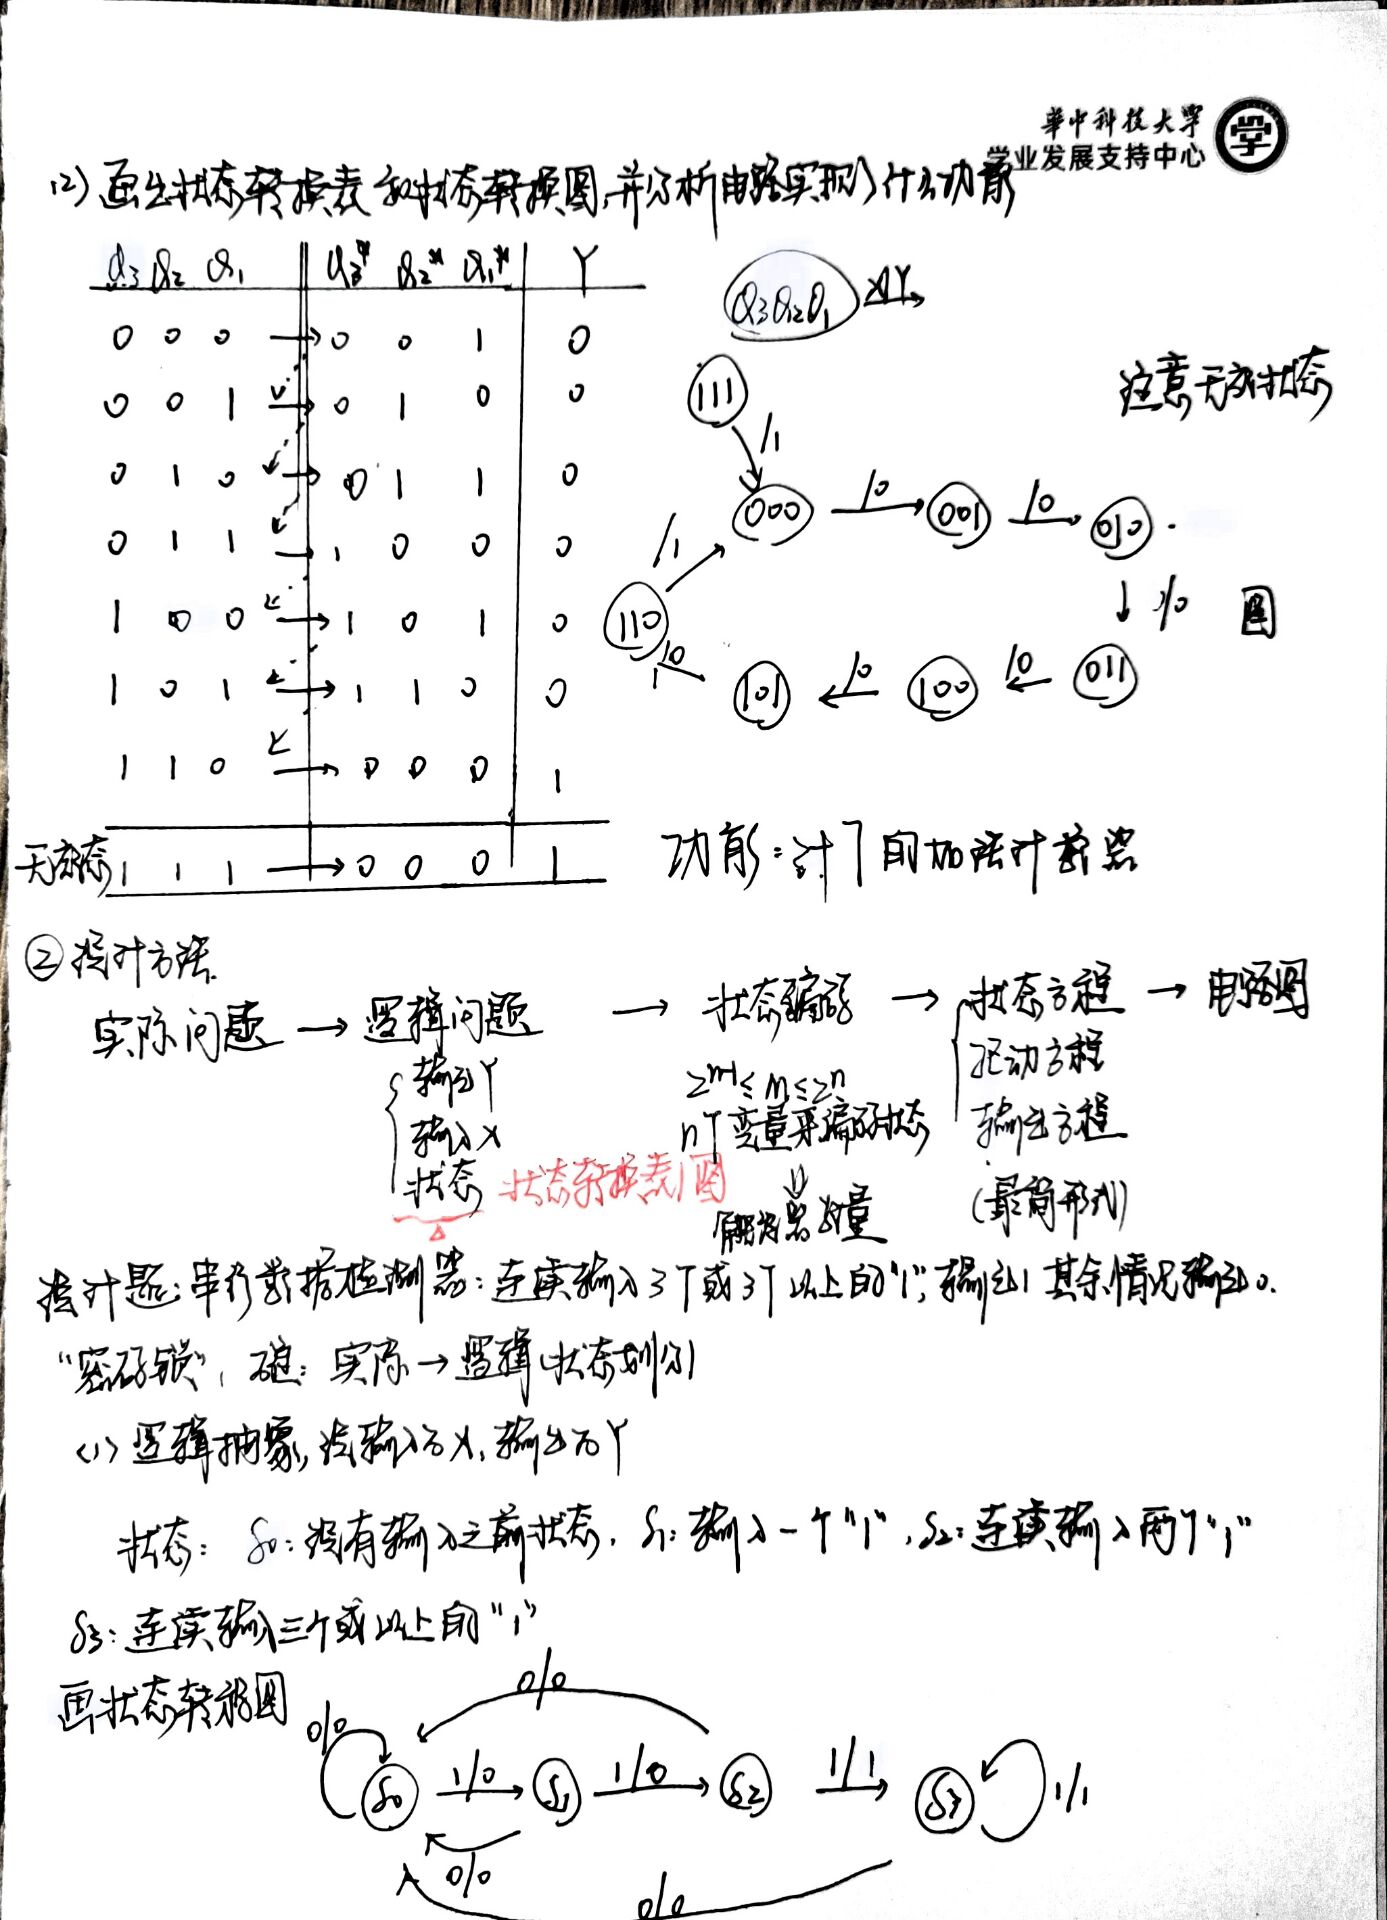 華中科技大学
学业发展支持中心
学
(2) 画出状态转换表和状态转换图,并分析电路实现了什么功能
Q3 Q2 Q1 Q3* Q2* Q1* Y
0 0 0 → 0 0 1 0
0 0 1 → 0 1 0 0
0 1 0 → 0 1 1 0
0 1 1 → 1 0 0 0
1 0 0 → 1 0 1 0
1 0 1 → 1 1 0 0
1 1 0 → 0 0 0 1
无效态 1 1 1 → 0 0 0 1
Q3Q2Q1 X/Y
注意无效状态
111
/1
000 /0 001 /0 010
/1
/0 图
110
/0 101 /0 100 /0 011
功能:计7的加法计数器
② 设计方法.
实际问题 → 逻辑问题 → 状态编码 → 状态方程 → 电路图
输出Y
输入X
状态 状态转换表/图
n个变量来编码状态
⇓
触发器数量
驱动方程
输出方程
(最简形式)
设计题:串行数据检测器:连续输入3个或3个以上的"1",输出1其余情况输出0.
"密码锁", 难:实际→逻辑(状态划分)
(1) 逻辑抽象,设输入为X,输出为Y
状态: S0:没有输入之前状态. S1:输入一个"1",S2:连续输入两个"1"
S3:连续输入三个或以上的"1"
画状态转移图
0/0
0/0
S0 1/0 S1 1/0 S2 1/1 S3 1/1
0/0
0/0